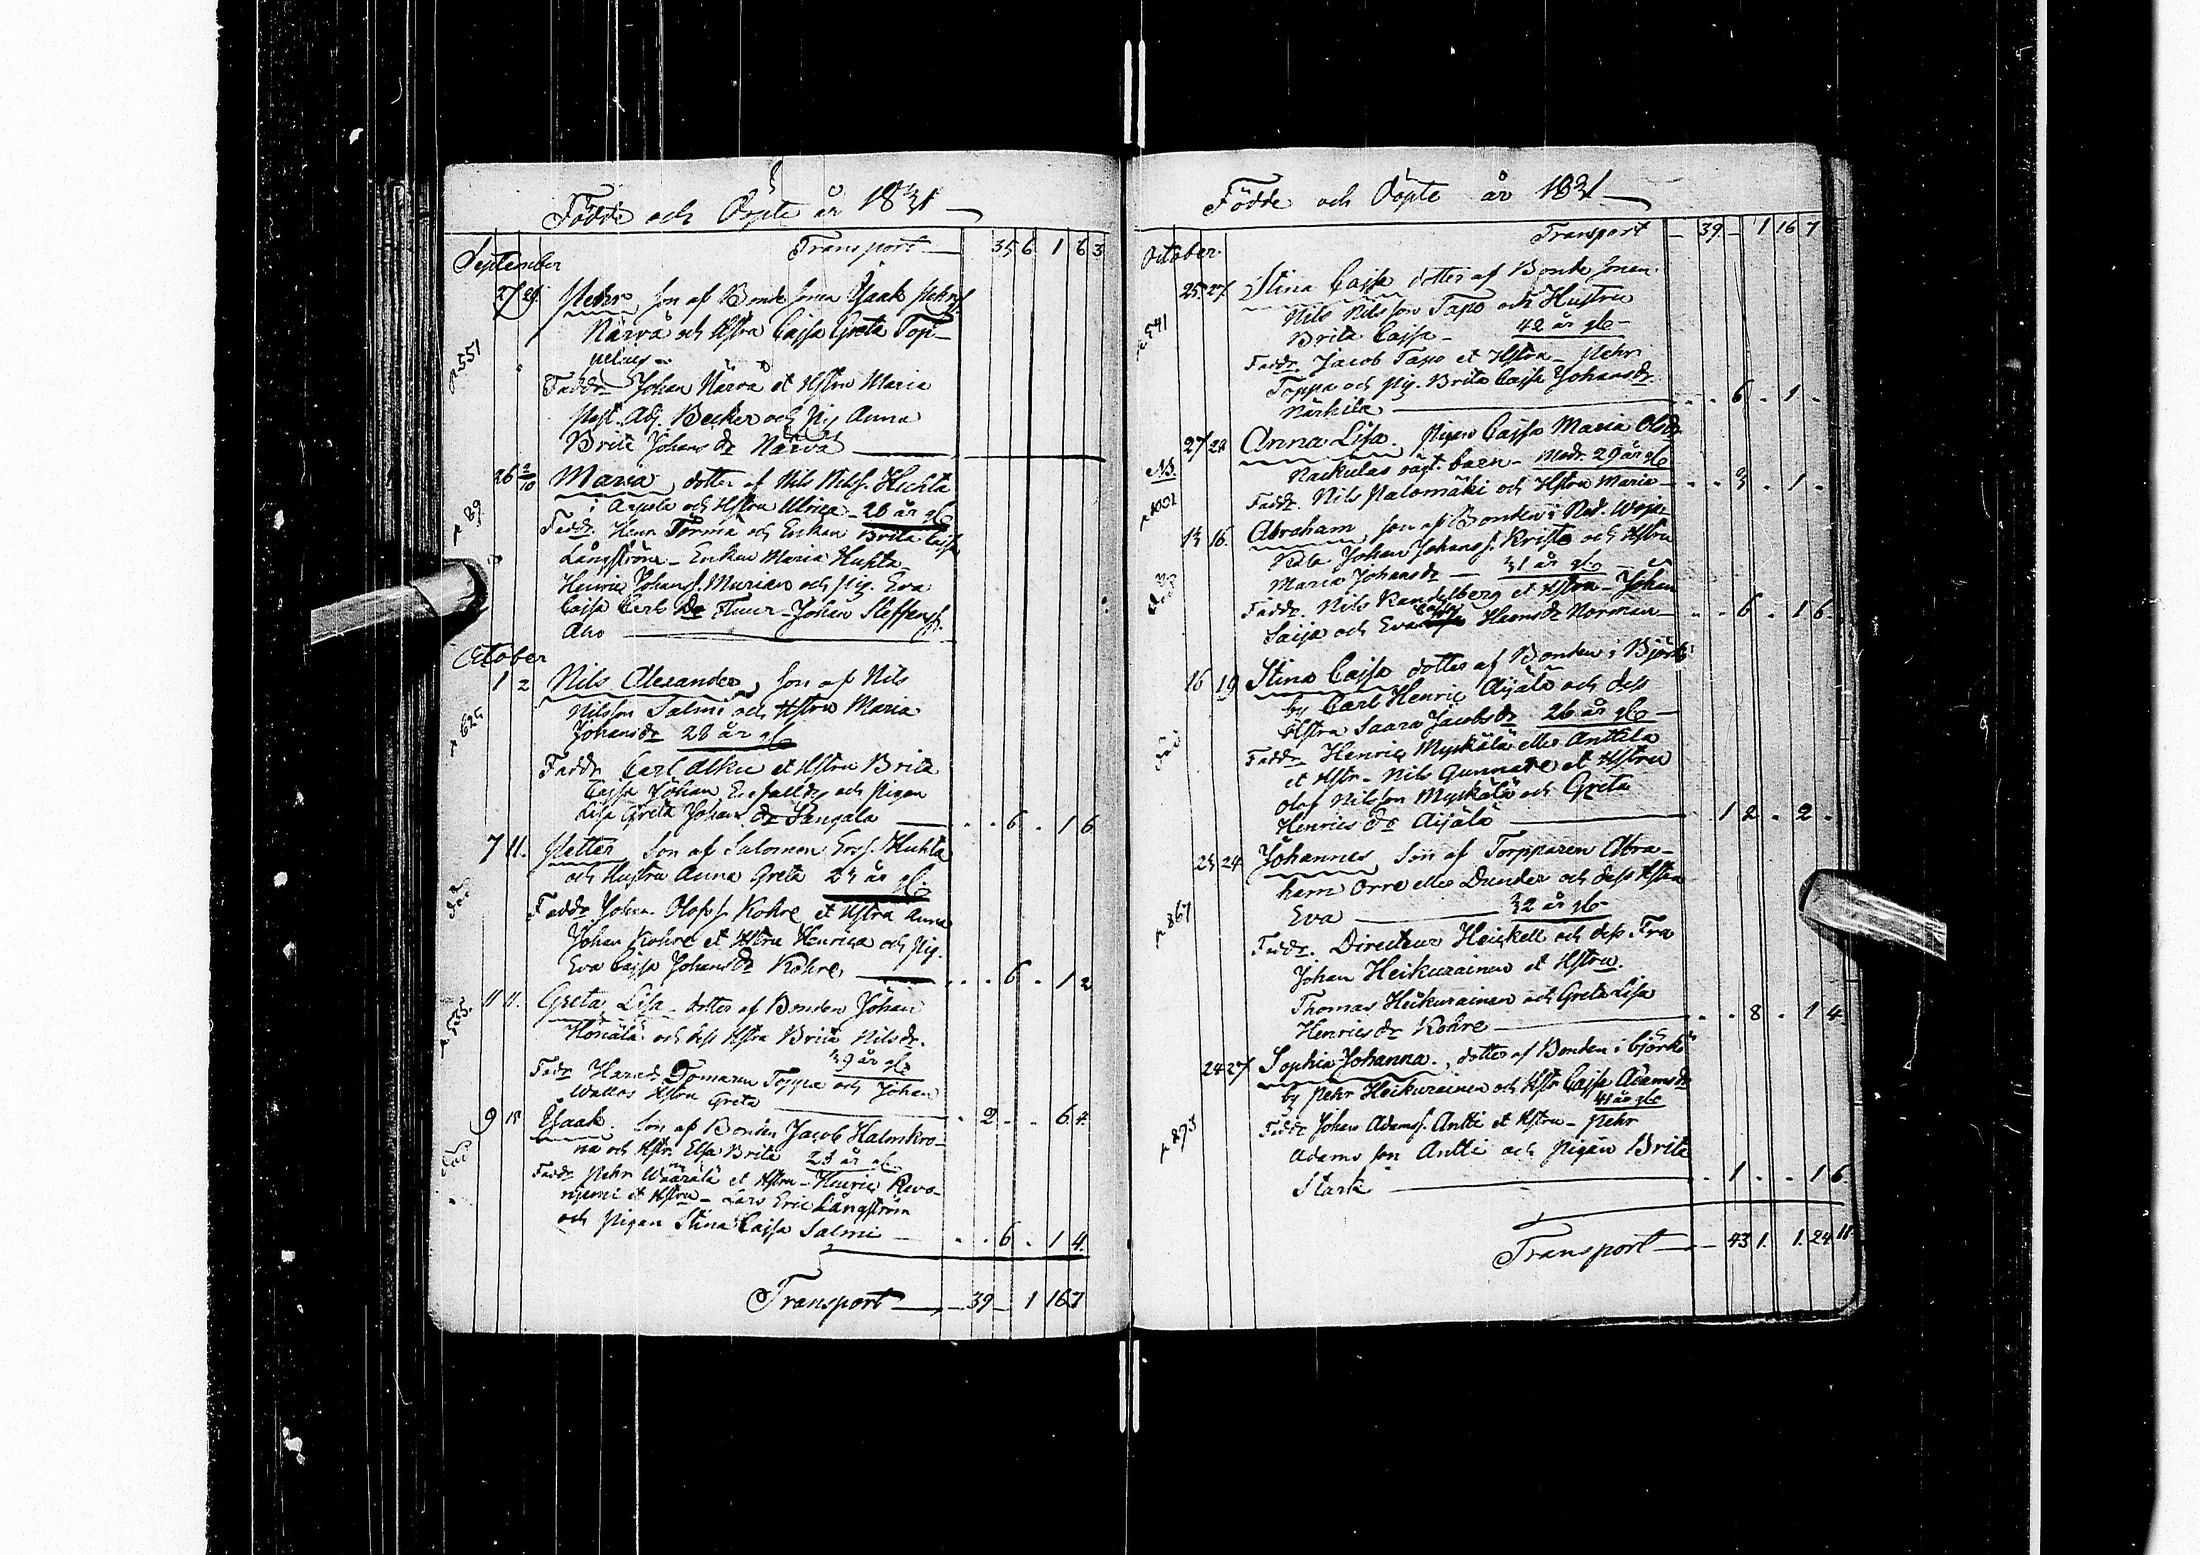 Födde och Döpte år 1831
Transport — 35 6 1 6 3
September
27 29. Pehr, son af Bonde sonen Isaak Pehrss.
Närvä och Hstru Cajsa Greta Top-
p 551
Faddr. Johan Närvä et Hstru Maria
Past. Adj. Becker och Pig. Anna
Brita Johans dr Närvä
26 2/10 Maria, dotter af Nils Nilss. Huhta
i Arpela och Hstru Ulrica — 28 år gl.
p 89
Faddr. Henr Törmä och Enkan Brita Cajsa
Långström — Enkan Maria Huhta
Henric Johans s. Murien och Pig. Eva
Cajsa Carls dr — Johan Steffanss.
Aho
October
1 2 Nils Alexander, son af Nils
Nilsson Salmi och Hstru Maria
Johansdr 28 år gl.
Faddr. Carl Alku et Hstru Brita
Cajsa Johan och Pigan
Lisa Greta Johans dr Kangala — . . 6 . 1 6
7 11. Petter, son af Salomon Erss. Huhta
och Hustru Anna Greta 23 år gl.
Faddr. Johan Olofs s. Kohre et Hstru Anna
Johan Kohre et Hstru Henrica och Pig.
Eva Cajsa Johans dr Kohre — . . 6 . 1 2
11 11. Greta Lisa, dotter af Bonden Johan
och dess Hstru Brita Nilsdr.
39 år gl.
Fadr Harald Tomann Toppa och Johan
Wallas Hstru Greta — . 2 . . 6. 4.
9 15 Isaak, son af Bonden Jacob Halmkro-
na och Hstr. Elsa Brita 23 år gl.
Faddr. Pehr Wäärälä et Hstru — Henric Revo-
niemi et Hstru — Lars Eric Långström
och Pigan Stina Cajsa Salmi — . . 6 . 1 4.
Transport — 39 — 1 16 7
Födde och Döpte år 1831
Transport — 39 — 1 16 7
October.
25. 27. Stina Cajsa dotter af Bonde sonen
Nils Nilsson Tapo och Hustru
Brita Cajsa — 42 år gl.
p 541
Faddr. Jacob Tapo et Hstru — Pehr
Toppa och Pig. Brita Cajsa Johansdr.
Närhilä — . . 6 . 1 .
27 28 Anna Lisa. Pigan Cajsa Maria Olsdr
Raekulas oägt. barn — Modr. 29 år gl.
Faddr. Nils Palomäki och Hstru Maria — . . 3 . 1 .
13 16. Abraham, son af Bonden i Ned. Woja-
kala Johan Johanss. Kritto och Hstru
Maria Johansdr — 31 år gl. —
Faddr. Nils Kandelberg et Hstru — Johan
Saija och Eva Cajsa Hansdr Norman — . . 6 . 1 6.
16 19 Stina Cajsa dotter af Bonden i Björkö
by Carl Henric Aijälä och dess
Hstru Saara Jacobsdr 26 år gl. —
Faddr. Henric Myskälä eller Anttila
et Hstr — Nils Gunnare et Hstru
Olof Nilsson Myskälä och Greta
Henrics dr Aijälä — 1 2 . 2 .
23 24 Johannes, son af Torpparen Abra-
ham Orre eller Dunder och dess Hstru
Eva — 32 år gl.
p 867
Faddr. Directeur Heickell och dess Fru
Johan Heikurainen et Hstru.
Thomas Heikurainen och Greta Lisa
Henricsdr Kohre — . . 8 . 1 4.
24 27 Sophia Johanna, dotter af Bonden i Björkö
by Pehr Heikurainen och Hstr Cajsa Adamsdr
41 år gl.
p 893
Faddr Johan Adamss. Antti et Hstru — Pehr
Adams son Antti och Pigan Brita
Stark — . 1 . . 1 6.
Transport — 43 1. 1. 24 11.